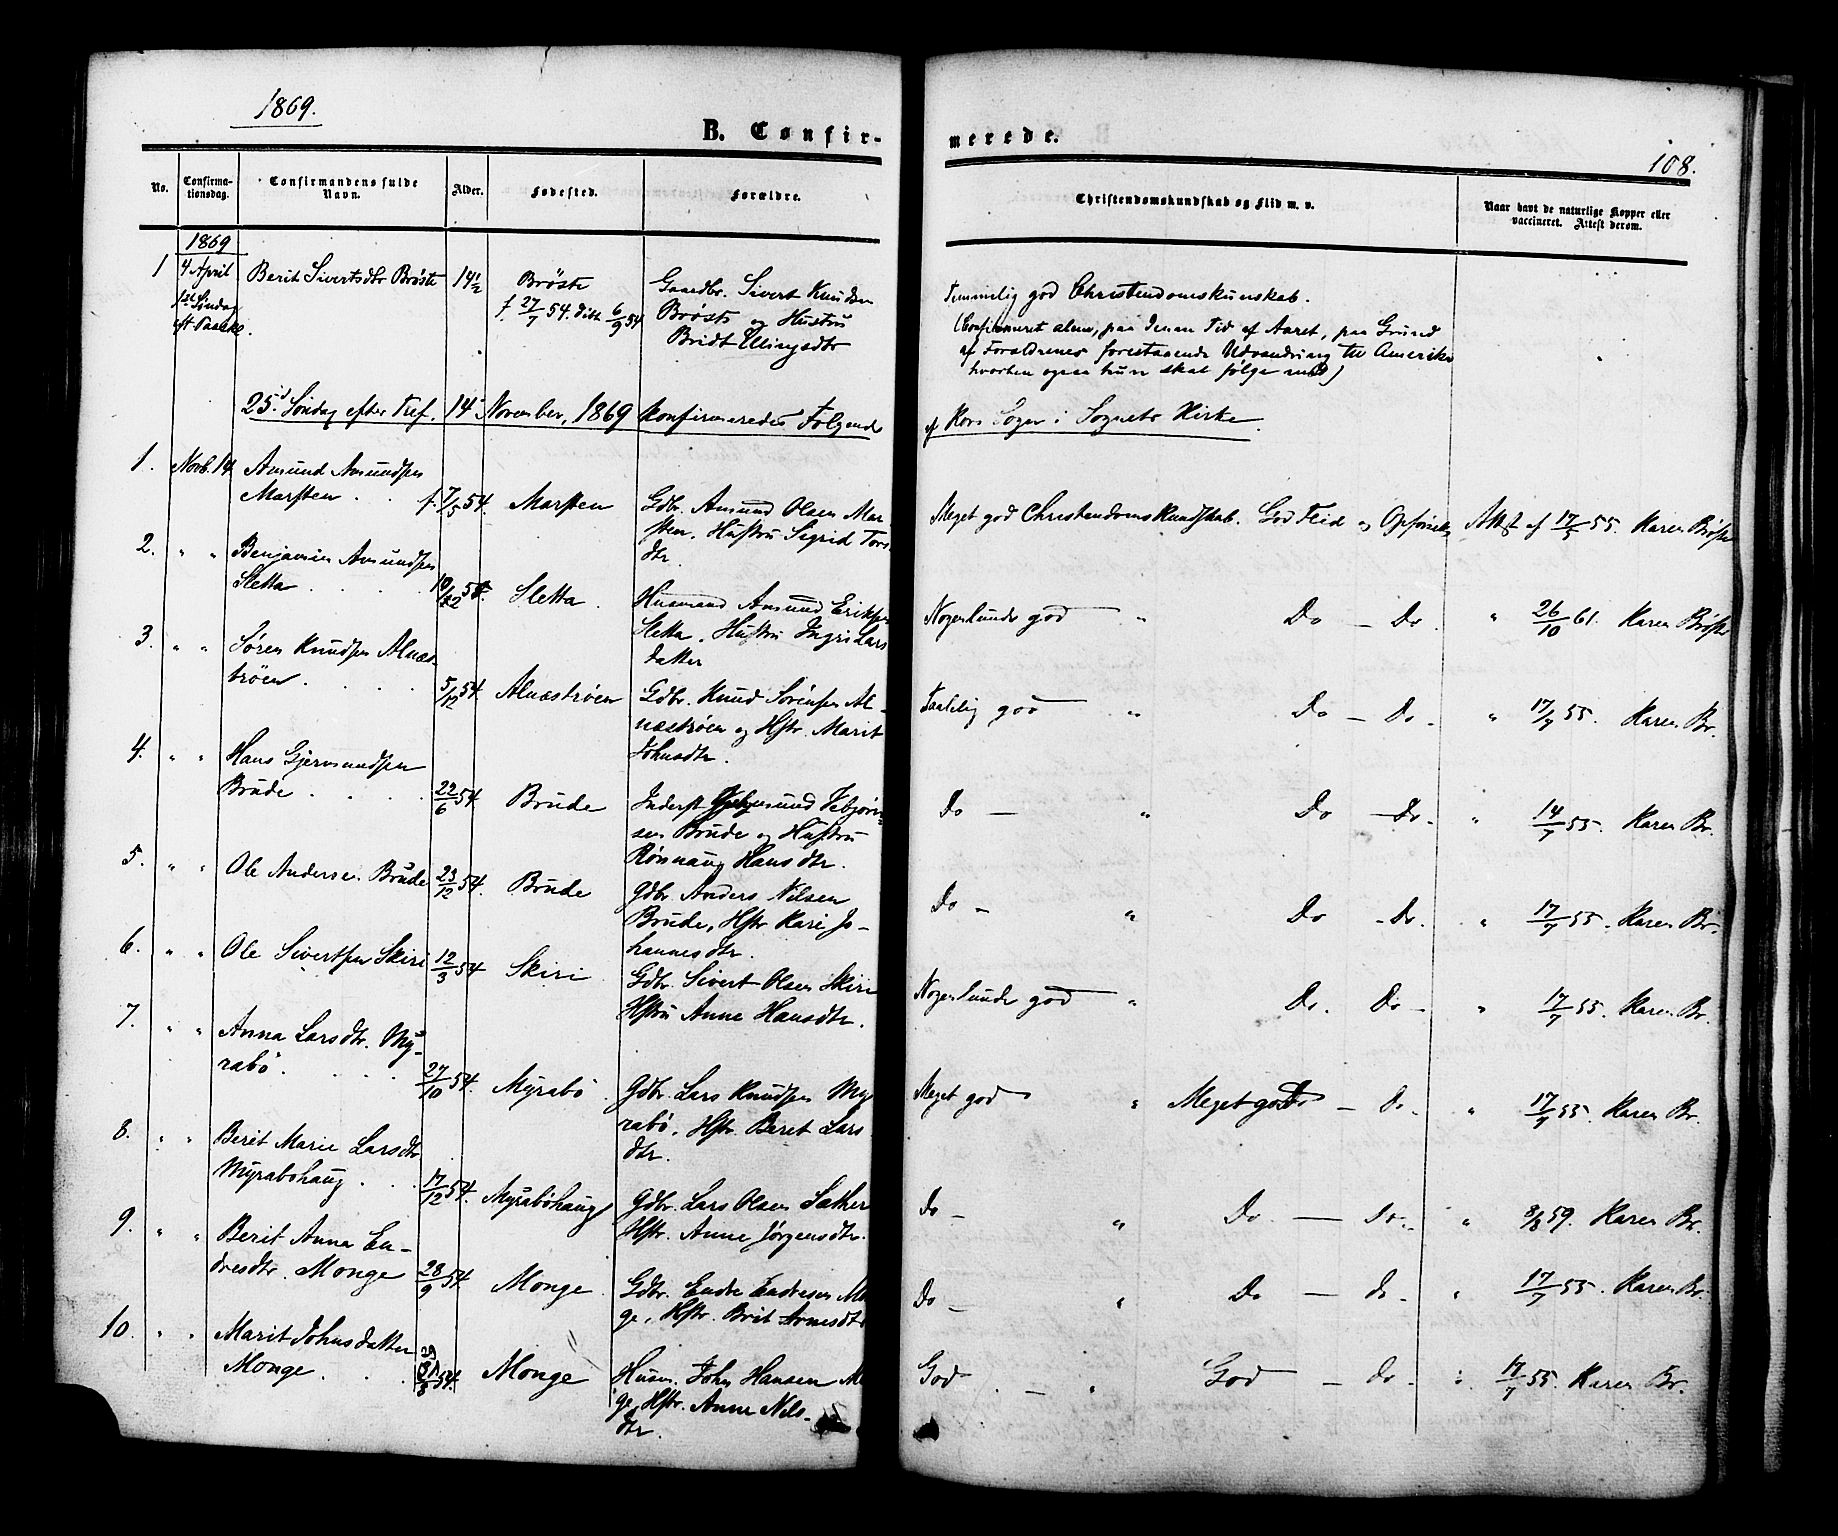 1869.
B. Confir-
merede.
108.
No.
Confirma-
tionsdag.
Confirmandens fulde
Navn.
Alder.
Fødested.
Forældre.
Christendomskundskab og Flid m. v.
Naar havt de naturlige Kopper eller
vaccineret. Attest derom.
1869
1 4 April Berit Sivertsdtr Brøste 14½ Brøste Gaardbr. Sivert Knudsen
1st Søndag f. 27/7 54. døbt 6/9 54 Brøste og Hustru
eft. Paaske. Bridt Ellingsdtr
Temmelig god Christendomskunskab.
(Confirmeret alene, paa denne Tid af Aaret, paa Grund
af Forældrenes forestaaende Udvandring til Amerika
hvorhen ogsaa hun skal følge med)
25d Søndag efter Tref. 14 November, 1869 Konfirmeredes Følgende
af Kors Sogn i Sognets Kirke.
1. Novb. 14 Amund Amundsen
Marsten . . f. 7/5 54. Marsten Gdbr. Amund Olsen Mar-
sten. Hustru Sigrid Tors
dtr.
Meget god Christendomskundskab. God Flid og Opførsel Attest af 17/5 55. Karen Brøste
2. " " Benjamin Amundsen
Sletta . . . . 54. Sletta. Husmand Amund Eriksen
Sletta, Hustru Ingri Lars
datter
Nogenlunde god " Do — Do. " 26/10 61. Karen Brøste
3. " " Søren Knudsen Alnæs-
trøen. . . . . 5/12 54. Alnæstrøen Gdbr. Knud Sørensen Al-
næstrøen og Hstr. Marit
Johnsdtr.
Taalelig god " Do — Do. " 17/7 55. Karen Br.
4. " " Hans Gjermundsen
Brude . . . . 22/6 54. Brude Inderst Gjermund Vebjørn-
sen Brude og Hustru
Rønnaug Hansdtr.
Do — " Do — Do. " 14/7 55. Karen Br.
5. " " Ole Anderse. Brude 23/12 54. Brude Gdbr. Anders Nilsen
Brude, Hstr Kari Jo-
hannesdtr.
Do — " Do — Do. " 17/7 55. Karen Br.
6. " " Ole Sivertsen Skiri 12/3 54 Skiri Gdbr. Sivert Olsen Skiri
Hstru Anne Hansdtr.
Nogenlunde god " Do. Do — " 17/7 55. Karen Br.
7. " " Anna Larsdtr. My-
rabø. . . . . 27/10 54. Myrabø. Gdbr. Lars Knudsen My
rabø, Hstr. Beret Lars
dtr.
Meget god " Meget god — Do. " 17/7 55. Karen Br.
8. " " Berit Marie Larsdtr
Myrabøhaug . . 17/12 54. Myrabøhaug Gdbr. Lars Olsen Sæther
Hstr. Anne Jørgensdtr.
Do — " Do. — Do. " 8/8 59. Karen Br.
9. " " Berit Anna En-
dresdtr. Monge 28/9 54 Monge. Gdbr. Endre Endresen Mo
ge, Hstr. Brit Arnesdtr
Do — " Do — Do. " 17/7 55. Karen Br.
10. " " Marit Johnsdatter
Monge. . . . 54. Monge Husm. John Hansen Mo
ge, Hstr. Anne Nils-
dtr.
God . — " God — Do. " 17/7 55. Karen Br.